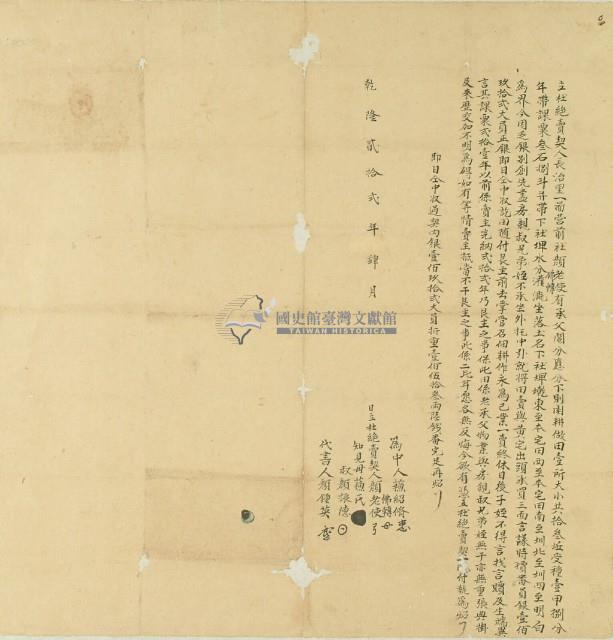 立杜絕賣契人長治里一圖營前社顏老使有承父鬮分應分下則南耕做田壹所大小共拾叁坵受種壹甲捌分
年帶課粟叁石捌斗并帶下社埤水分灌溉坐落土名下社埤墘東至本宅田西至本宅田南至圳北至圳四至明白
為界今因乏銀別創先盡房親叔兄弟姪不承坐外托中引就得田賣與黃宅出頭承買三面言議時價番銀壹佰
玖拾弍大員正銀即日仝中收訖田隨付艮主前去掌管召佃耕作永為己業一賣終休日後子姪不得言找言贖及生端異
言其課粟弍拾壹年以前係賣主完納弍拾弍年乃艮主之事保此田係老承父物業與房親叔兄弟姪無干亦無重張典掛
及來歷交加不明為碍如有等情賣主抵當不干艮主之事此係二比甘愿各無反悔今欲有憑立杜絕賣契一紙付執為照
即日仝中收過契內銀壹佰玖拾弍大員折重壹佰伍拾叁兩陸錢番完足再照
乾隆貳拾弍年肆月 日立杜絕賣契人顏老使
為中人蘇紹脩
知見母蘇氏
叔顏振德
代書人顏鍾英
國史館臺灣文獻館
TAIWAN HISTORICA